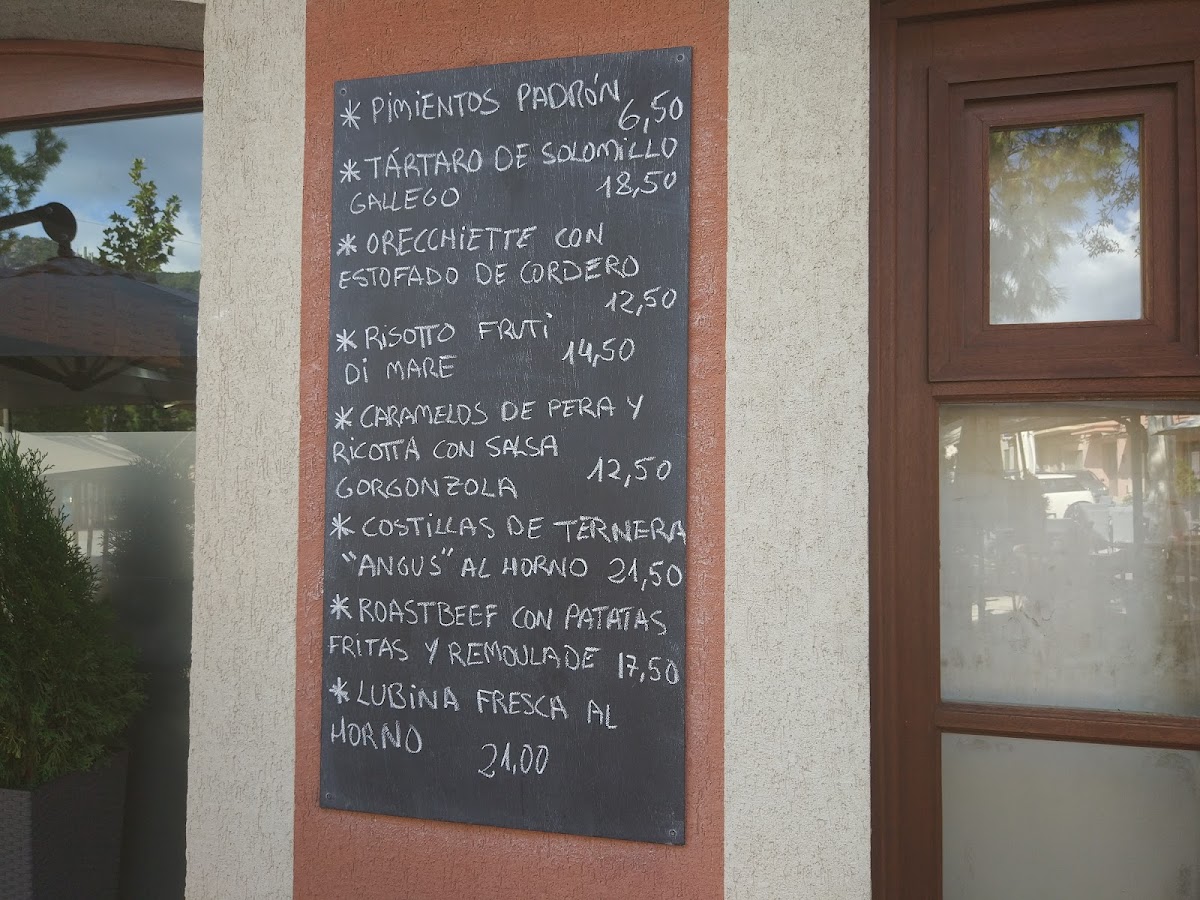 * PIMIENTOS PADRÓN
6,50
* TÁRTARO DE SOLOMILLO
GALLEGO 18,50
* ORECCHIETTE CON
ESTOFADO DE CORDERO
12,50
* RISOTTO FRUTI
DI MARE 14,50
* CARAMELOS DE PERA Y
RICOTTA CON SALSA
GORGONZOLA 12,50
* COSTILLAS DE TERNERA
"ANGUS" AL HORNO 21,50
* ROASTBEEF CON PATATAS
FRITAS Y REMOULADE 17,50
* LUBINA FRESCA AL
HORNO 21,00